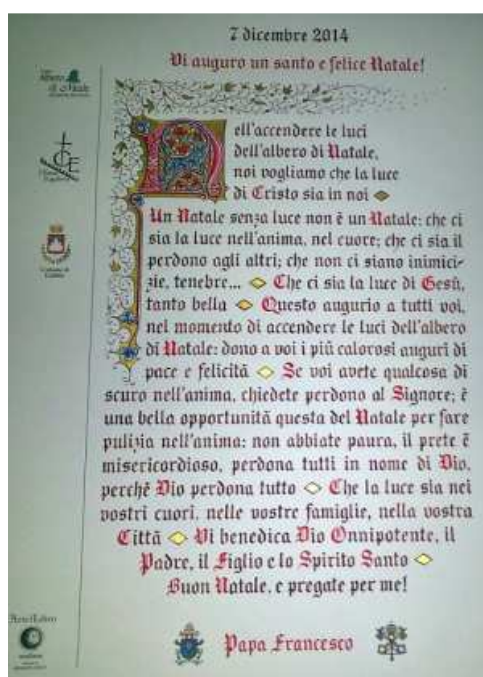 7 dicembre 2014
Vi auguro un santo e felice Natale!
Nell'accendere le luci
dell'albero di Natale,
noi vogliamo che la luce
di Cristo sia in noi
Un Natale senza luce non è un Natale: che ci
sia la luce nell'anima, nel cuore; che ci sia il
perdono agli altri; che non ci siano inimici-
zie, tenebre... Che ci sia la luce di Gesù,
tanto bella Questo augurio a tutti voi,
nel momento di accendere le luci dell'albero
di Natale: dono a voi i più calorosi auguri di
pace e felicità Se voi avete qualcosa di
scuro nell'anima, chiedete perdono al Signore; è
una bella opportunità questa del Natale per fare
pulizia nell'anima: non abbiate paura, il prete è
misericordioso, perdona tutti in nome di Dio,
perchè Dio perdona tutto Che la luce sia nei
vostri cuori, nelle vostre famiglie, nella vostra
Città Vi benedica Dio Onnipotente, il
Padre, il Figlio e lo Spirito Santo
Buon Natale, e pregate per me!
Papa Francesco